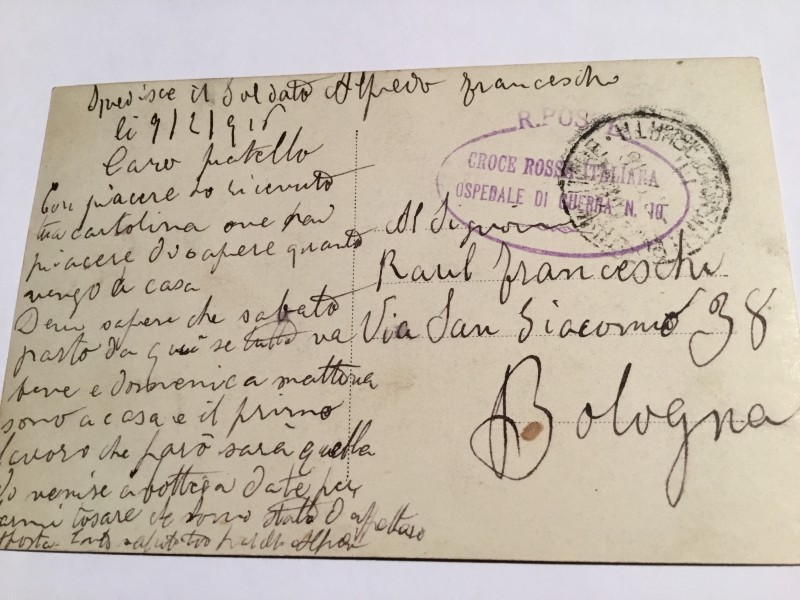 Spedisce il Soldato Alfredo Franceschi
li 9/2/916
Caro fratello
Con piacere ho ricevuto
tua cartolina ove hai
piacere di sapere quanto
vengo a casa
Devi sapere che sabato
parto da qui se tutto va
bene e domenica mattina
sono a casa e il primo
lavoro che farò sarà quella
di venire a bottega da te per
farmi tosare che sono stato
tuo fratello Alfredo
R. POSTA
CROCE ROSSA ITALIANA
OSPEDALE DI GUERRA N. 10
Al Signor
Raul Franceschi
Via San Giacomo 38
Bologna